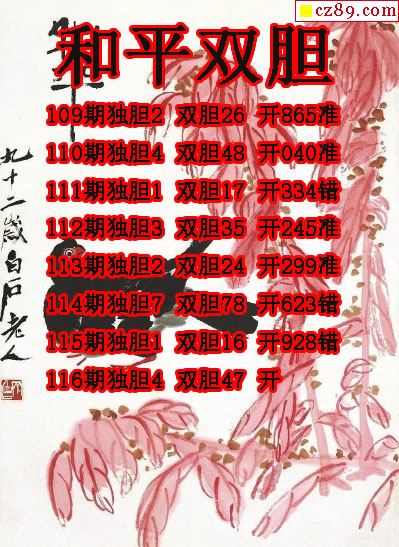 cz89.com
和平双胆
109期独胆2 双胆26 开865准
110期独胆4 双胆48 开040准
111期独胆1 双胆17 开334错
112期独胆3 双胆35 开245准
113期独胆2 双胆24 开299准
114期独胆7 双胆78 开623错
115期独胆1 双胆16 开928错
116期独胆4 双胆47 开
九十二岁白石老人